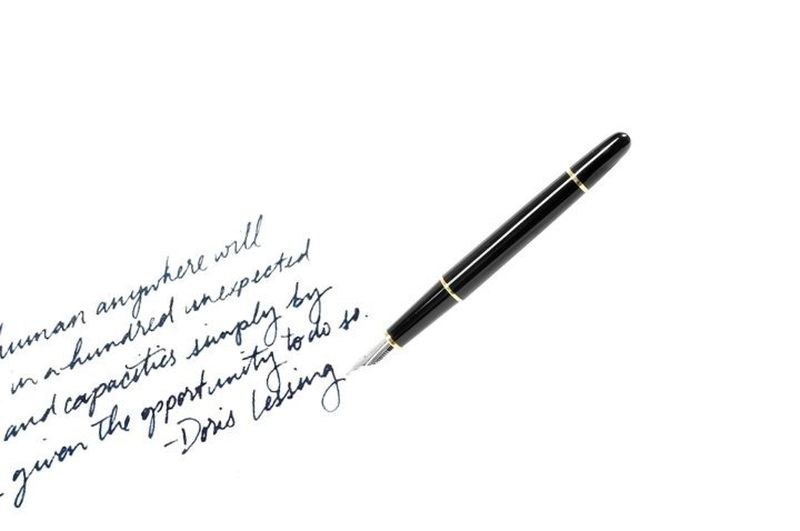 human anywhere will
in a hundred unexpected
and capacities simply by
given the opportunity to do so.
-Doris Lessing